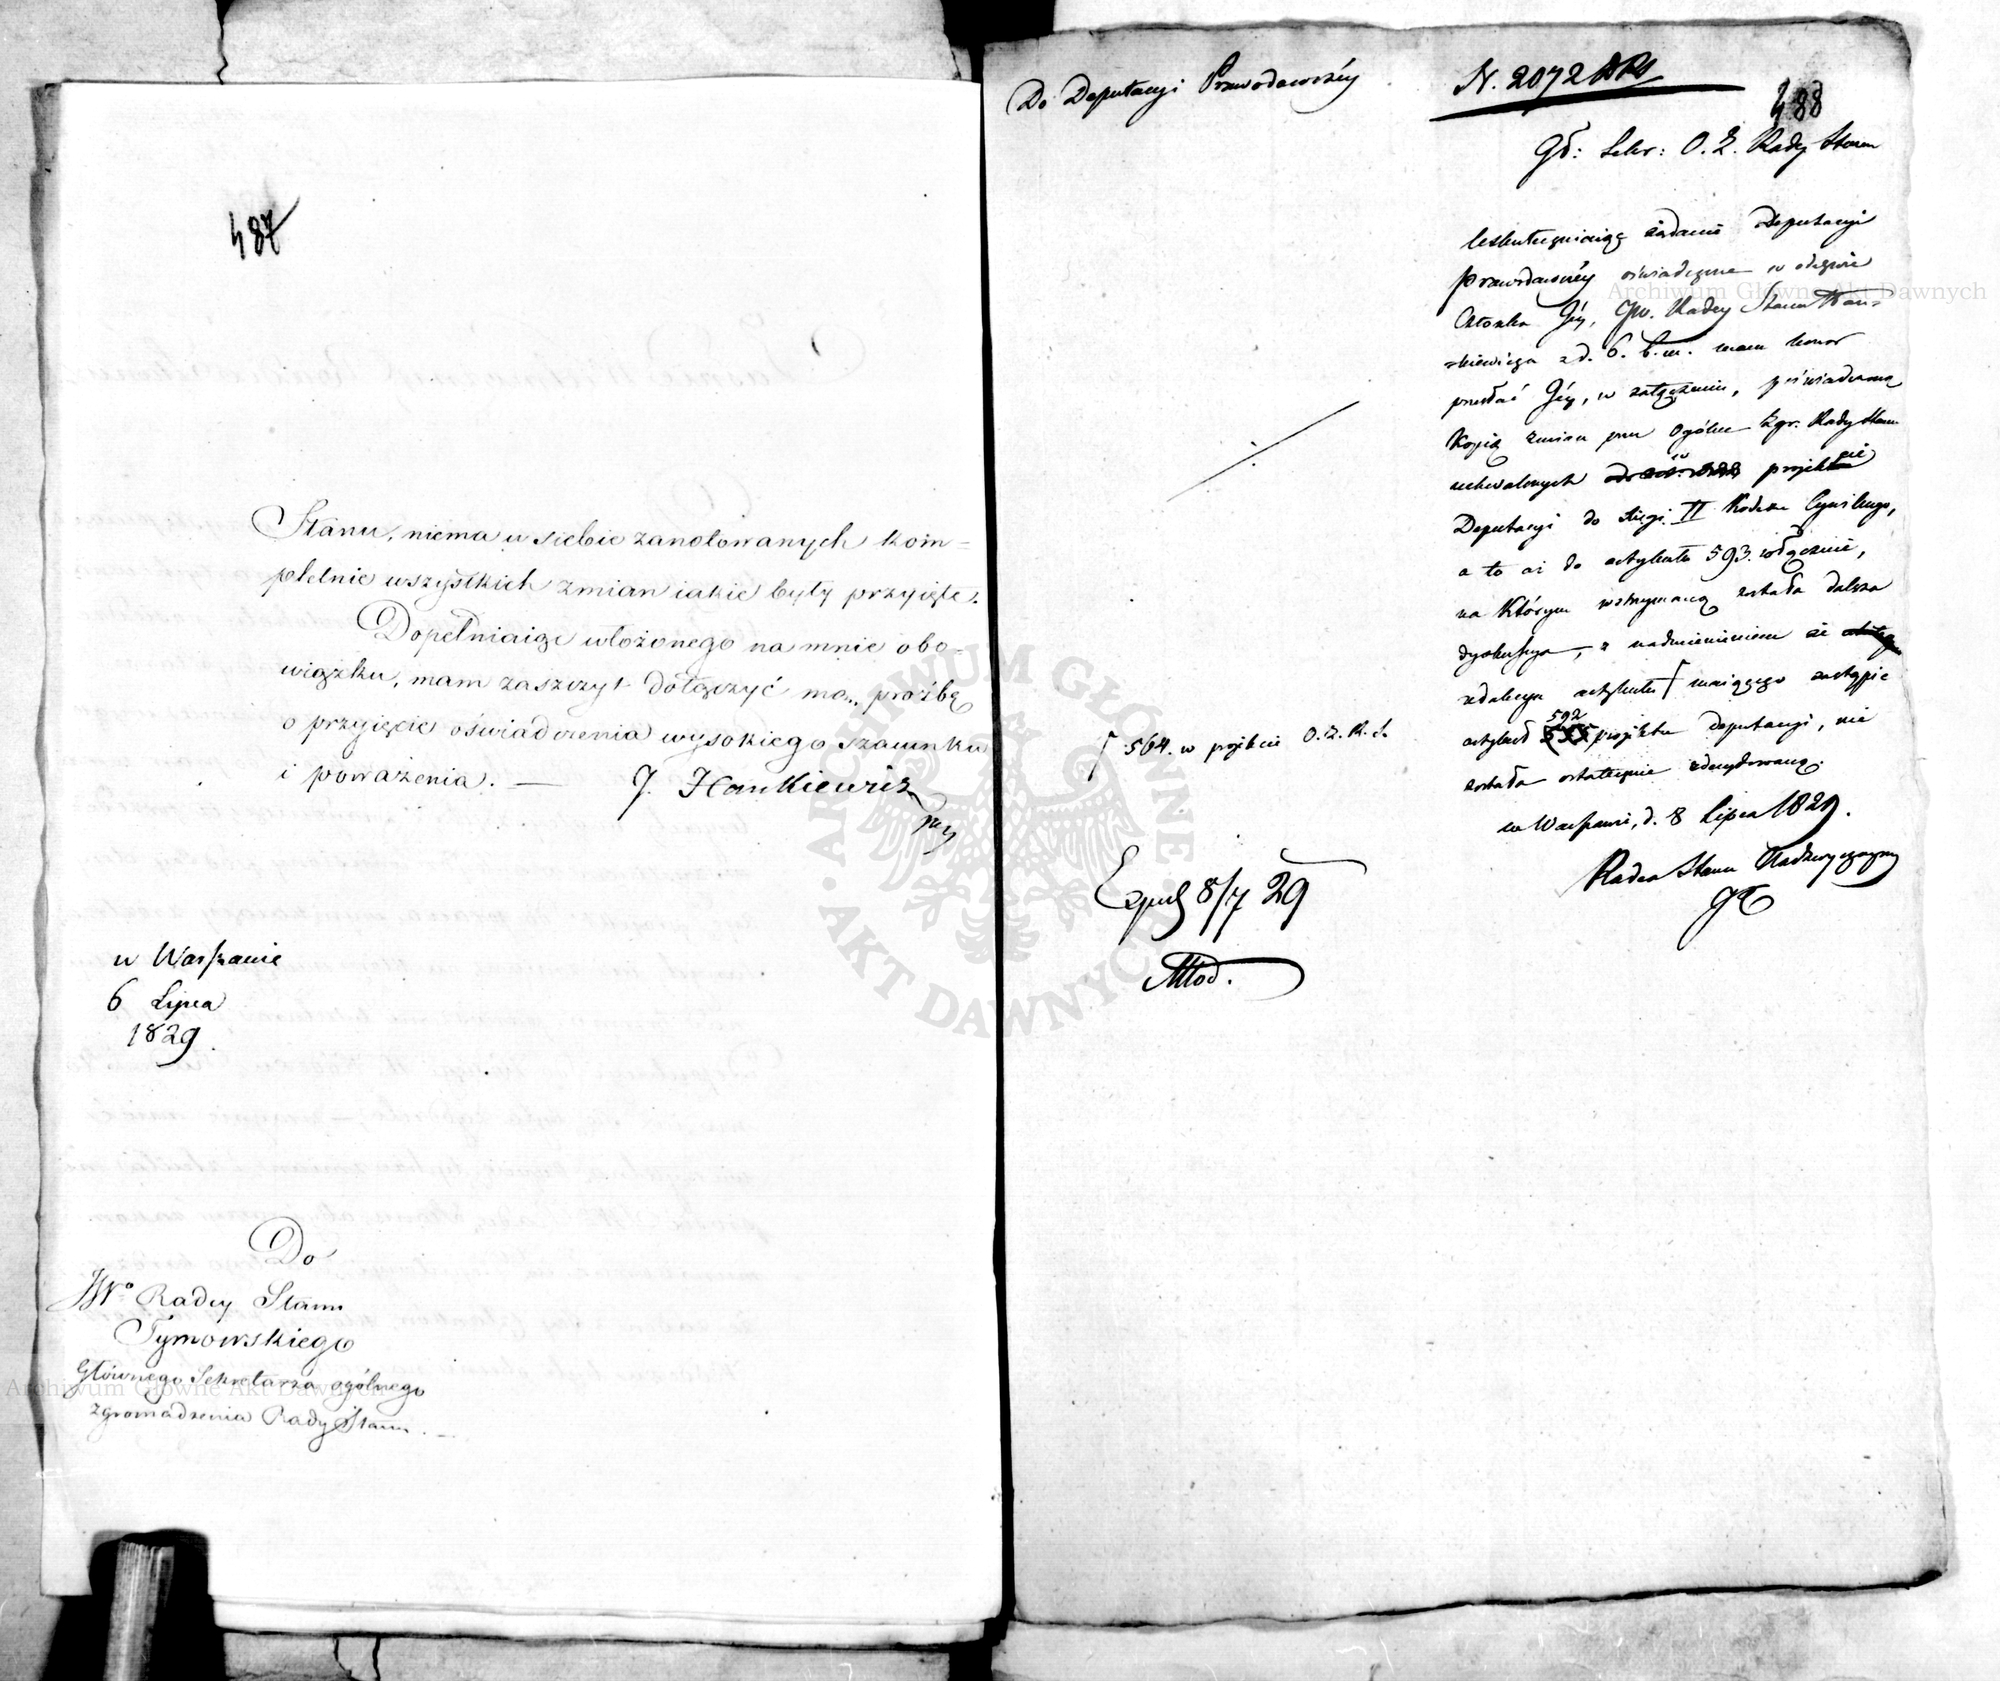 487
Stanu, niema u siebie zanotowanych kom=
pletnie wszystkich zmian iakie były przyięte.
Dopełniaiąc włożonego na mnie obo=
wiązku, mam zaszczyt dołączyć mą prośbę
o przyięcie oświadczenia wysokiego szacunku
i poważenia. —
J. Hankiewicz
w Warszawie
6 Lipca
1829.
Do
JWo Radcy Stanu
Tymowskiego
Głównego Sekretarza ogólnego
zgromadzenia Rady Stanu. —
Do Deputacyi Prawodawczéy
N. 2072
488
Gł: Sekr: O. Z. Rady Stanu
Uskuteczniaiąc żądanie Deputacyi
Prawodawczéy oświadczone w odezwie
Członka Jéy, JW. Radcy Stanu Han=
=kiewicza z d. 6. b. m. mam honor
przesłać Jéy, w załączeniu, poświadczoną
Kopią zmian przez Ogólne Zgr. Rady Stanu
uchwalonych w projekcie
Deputacyi do Xięgi II Kodexu Cywilnego,
a to aż do artykułu 593. włącznie,
na którym wstrzymaną została dalsza
dyskussya, z nadmienieniem że
redakcya artykułu ſ maiącego zastąpić
artykuł 592 projektu deputacyi, nie
została ostatecznie zdecydowaną.
w Warszawie, d. 8 Lipca 1829.
Radca Stanu Nadzwyczayny
ſ 564. w projekcie O. Z. R. S.
Exped 8/7 29
Młod.
ARCHIWUM GŁÓWNE AKT DAWNYCH
Archiwum Główne Akt Dawnych
Archiwum Główne Akt Dawnych